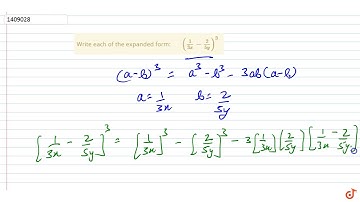 1409028
Write each of the expanded form: (1/3x - 2/5y)^3
(a-b)^3 = a^3 - b^3 - 3ab(a-b)
a = 1/3x b = 2/5y
[1/3x - 2/5y]^3 = [1/3x]^3 - [2/5y]^3 - 3[1/3x][2/5y][1/3x - 2/5y]